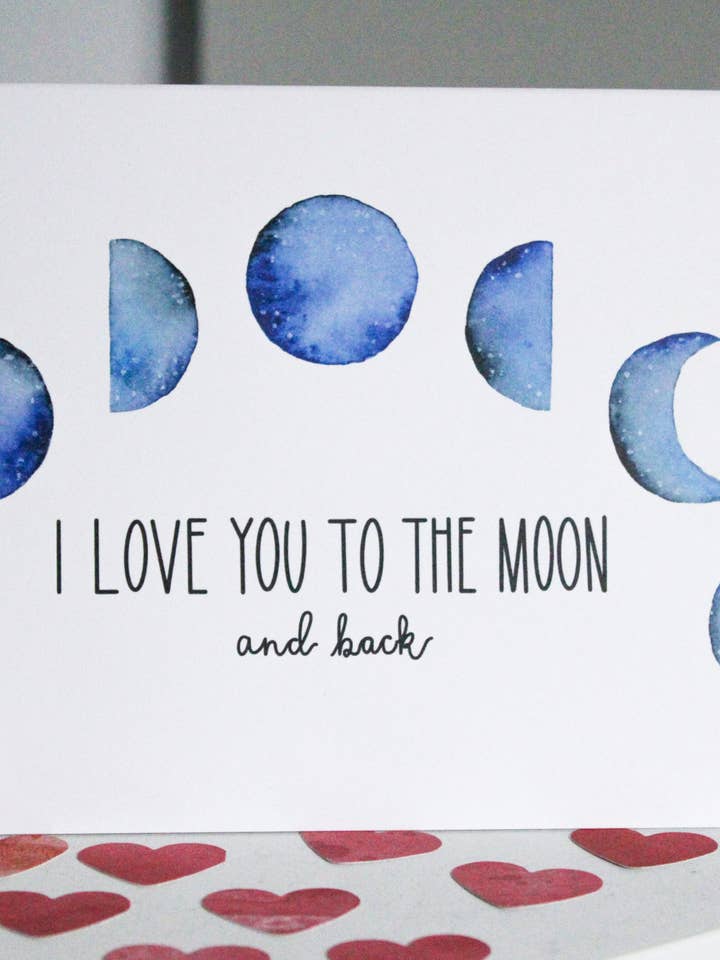 I LOVE YOU TO THE MOON
and back